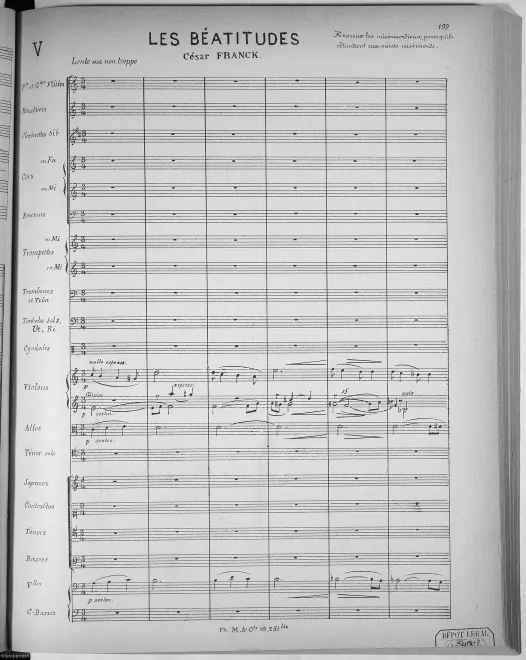 189
V
LES BÉATITUDES
César FRANCK.
Heureux les miséricordieux, parce qu'ils
obtiendront eux-mêmes miséricorde.
Lento ma non troppo
Hautbois
Clarinettes Sib
en Fa
Cors
en Mi
Bassons
en Mi
Trompettes
en Mi
Trombones
et Tuba
Timbales Sol♯,
Ut, Ré
Cymbales
molto espress.
Violons
p
Divisi
espress.
p sosten.
sf
Altos
p sosten.
Ténor solo
Sopranos
Contraltos
Ténors
Basses
Vlles
p sosten.
C-Basses
DÉPOT LEGAL